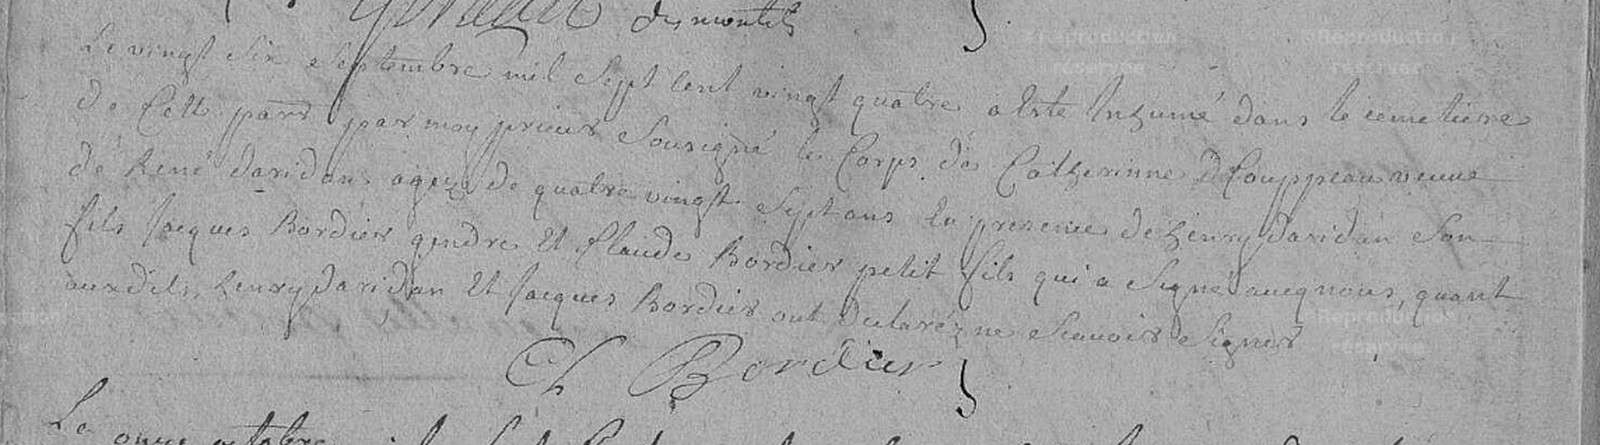 desmontils
Le vingt Six Septembre mil Sept Cent vingt quatre a Este Inhumé dans le cemetiere
de Cette parr par moy prieur Sousigné le Corps de Catherinne Couppeau veuve
de René daridan agéz de quatre vingt Sept ans En presence de henry daridan Son
fils Jacques Bordier gendre Et Claude Bordier petit fils qui a Signé avecq nous, quant
auxdits henry daridan Et Jacques Bordier ont declaréz ne Scavoir Signer
Ch Bordier
Le onze octobre